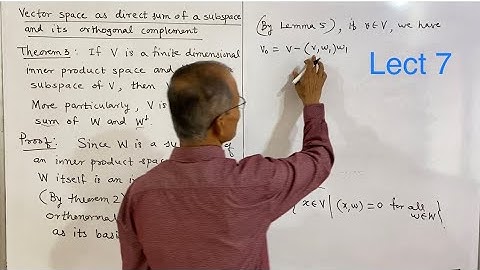 Vector space as direct sum of a subspace
and its orthogonal complement
Theorem 3: If V is a finite dimensional
inner product space and
subspace of V, then
More particularly, V is
sum of W and W⊥
Proof: Since W is a su of
an inner product spac
W itself is an in
(By theorem 2)
orthonormal
as its basi
(By Lemma 5), if v∈V, we have
v₀ = v − (v,w₁)w₁
Lect 7
{x∈V | (x,w) = 0 for all
w∈W}